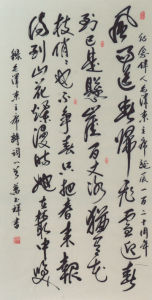 纪念伟人毛泽东主席诞辰一百二十周年
風雨送春歸飛雪迎春
到已是懸崖百丈冰猶有花
枝俏俏也不争春只把春来報
待到山花爛漫时她在叢中笑
毛泽东主席诗词一首